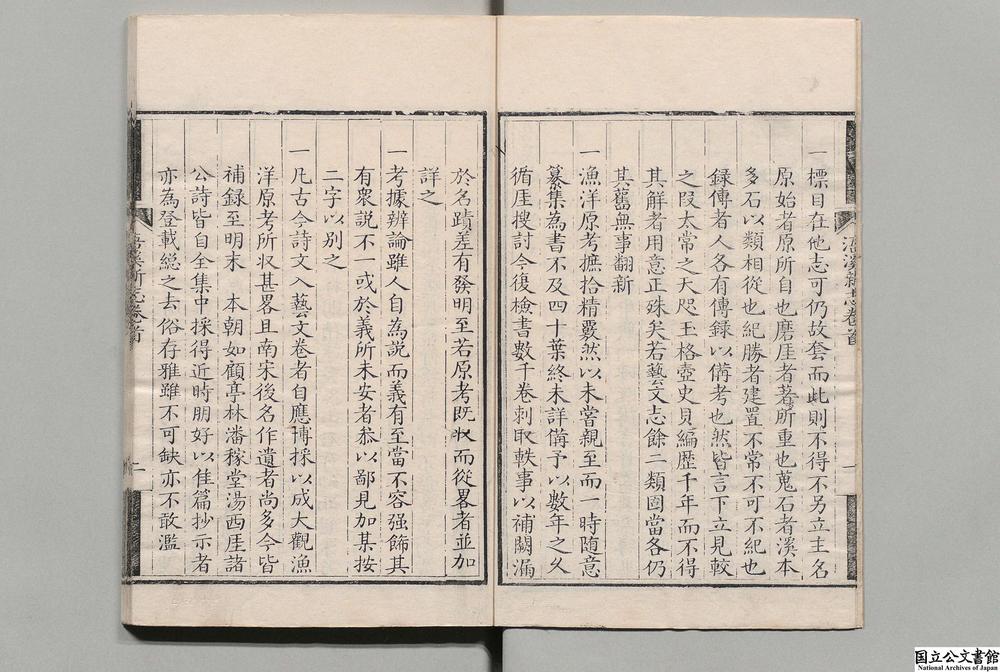 一標目在他志可仍故套而此則不得不另立主名
原始者原所自也磨厓者著所重也蒐石者溪本
多石以類相從也紀勝者建置不常不可不紀也
錄傳者人各有傳錄以備考也然皆言下立見較
之段太常之天咫玉格壺史貝編歷千年而不得
其解者用意正殊矣若藝文志餘二類固當各仍
其舊無事翻新
一漁洋原考摭拾精覈然以未嘗親至而一時隨意
纂集為書不及四十葉終未詳備予以數年之久
循厓搜討今後檢書數千卷刺取軼事以補闕漏
浯溪新志卷首
一
於名蹟差有發明至若原考既収而從畧者並加
詳之
一考據辨論雖人自為說而義有至當不容强飾其
有衆說不一或於義所未安者叅以鄙見加某按
二字以別之
一凡古今詩文入藝文卷者自應博採以成大觀漁
洋原考所収甚畧且南宋後名作遺者尚多今皆
補録至明末 本朝如顧亭林潘稼堂湯西厓諸
公詩皆自全集中採得近時朋好以佳篇抄示者
亦為登載緫之去俗存雅雖不可缺亦不敢濫
浯溪新志卷首
一
国立公文書館
National Archives of Japan